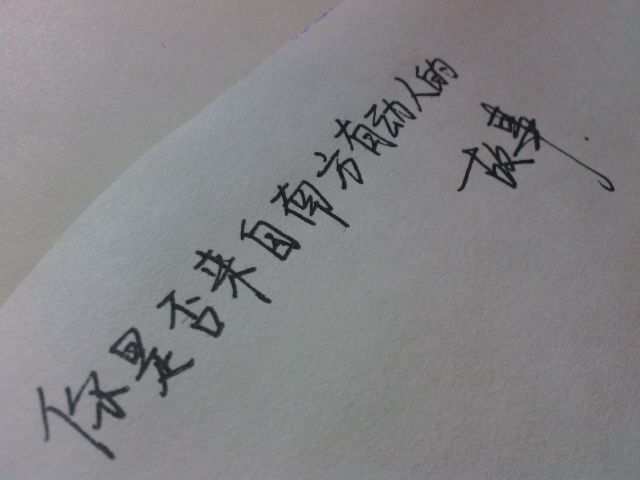 你是否来自南方有动人的
故事